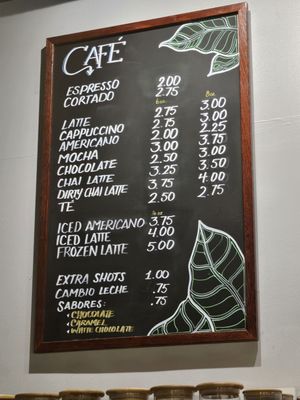 CAFÉ
ESPRESSO 2.00
CORTADO 2.75
6oz 8oz
LATTE 2.75 3.00
CAPPUCCINO 2.75 3.00
AMERICANO 2.00 2.25
MOCHA 3.00 3.75
CHOCOLATE 2.50 3.00
CHAI LATTE 3.25 3.50
DIRTY CHAI LATTE 3.75 4.00
TÉ 2.50 2.75
oz
ICED AMERICANO 3.75
ICED LATTE 4.00
FROZEN LATTE 5.00
EXTRA SHOTS 1.00
CAMBIO LECHE .75
SABORES: .75
• CHOCOLATE
• CARAMEL
• WHITE CHOCOLATE